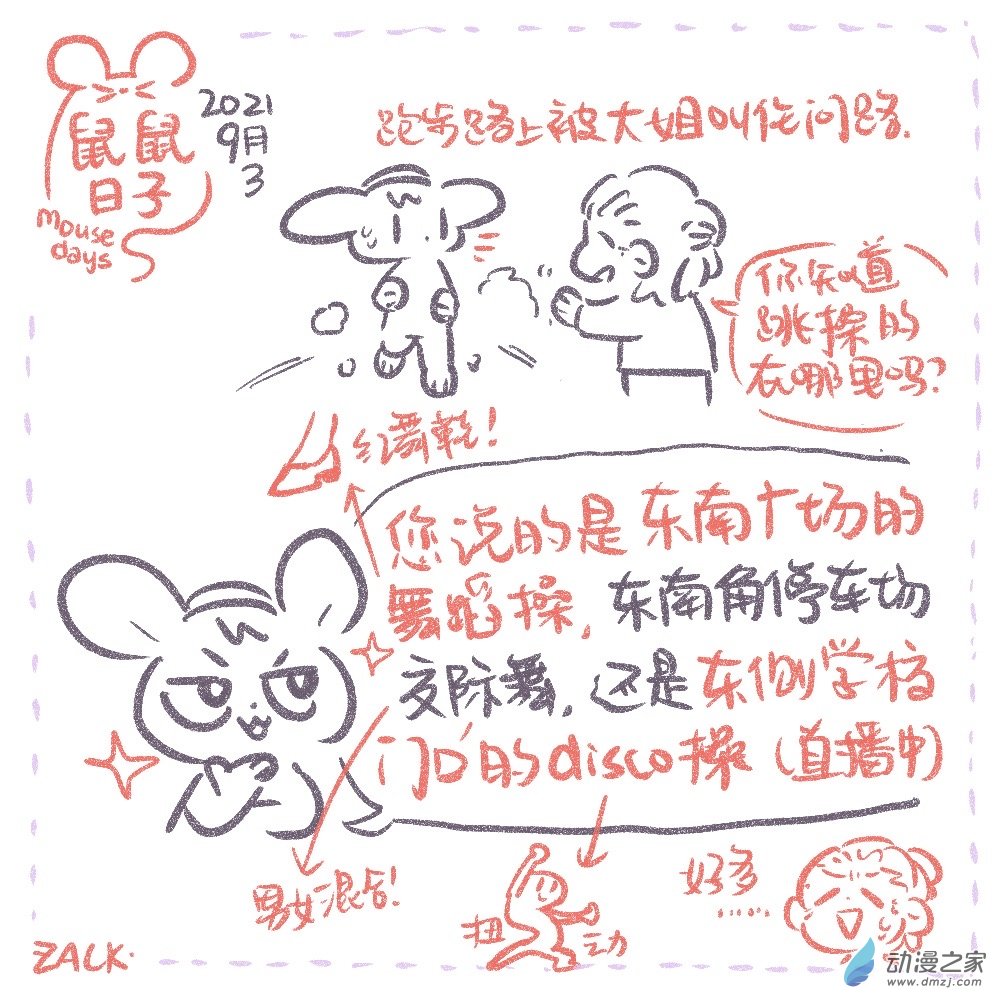 鼠鼠
日子
mouse
days
2021
9月
3
跑步路上被大姐叫住问路.
你知道
跳操的
在哪里吗?
红舞鞋!
您说的是东南广场的
舞蹈操,东南角停车场
交际舞,还是东侧学校
门口的disco操(直播中)
男女混合!
扭
动
好多
......
ZALK.
动漫之家
www.dmzj.com